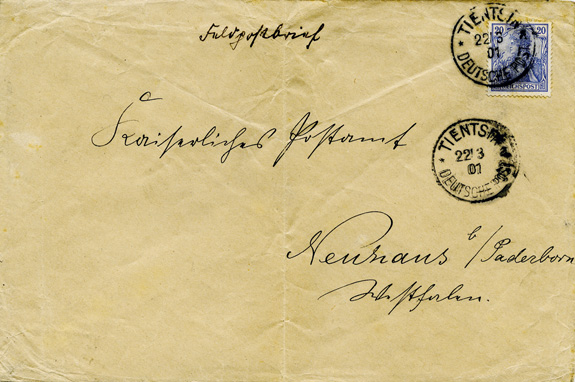 Feldpostbrief
20 20
REICHSPOST
* TIENTSIN
22 3
01
DEUTSCHE POST
Kaiserliches Postamt
* TIENTSIN
22 3
01
DEUTSCHE
Neuhaus b/Paderborn
Westfalen.